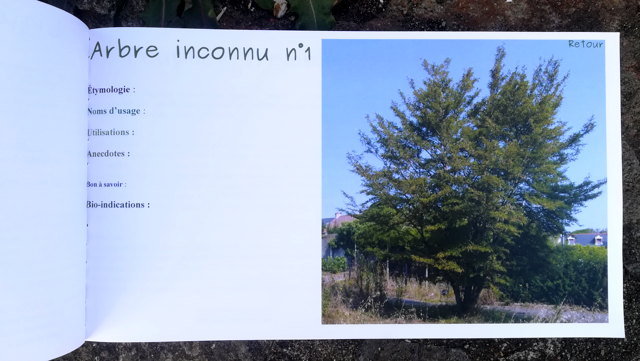 Arbre inconnu n°1
Retour
Étymologie :
Noms d'usage :
Utilisations :
Anecdotes :
Bon à savoir :
Bio-indications :